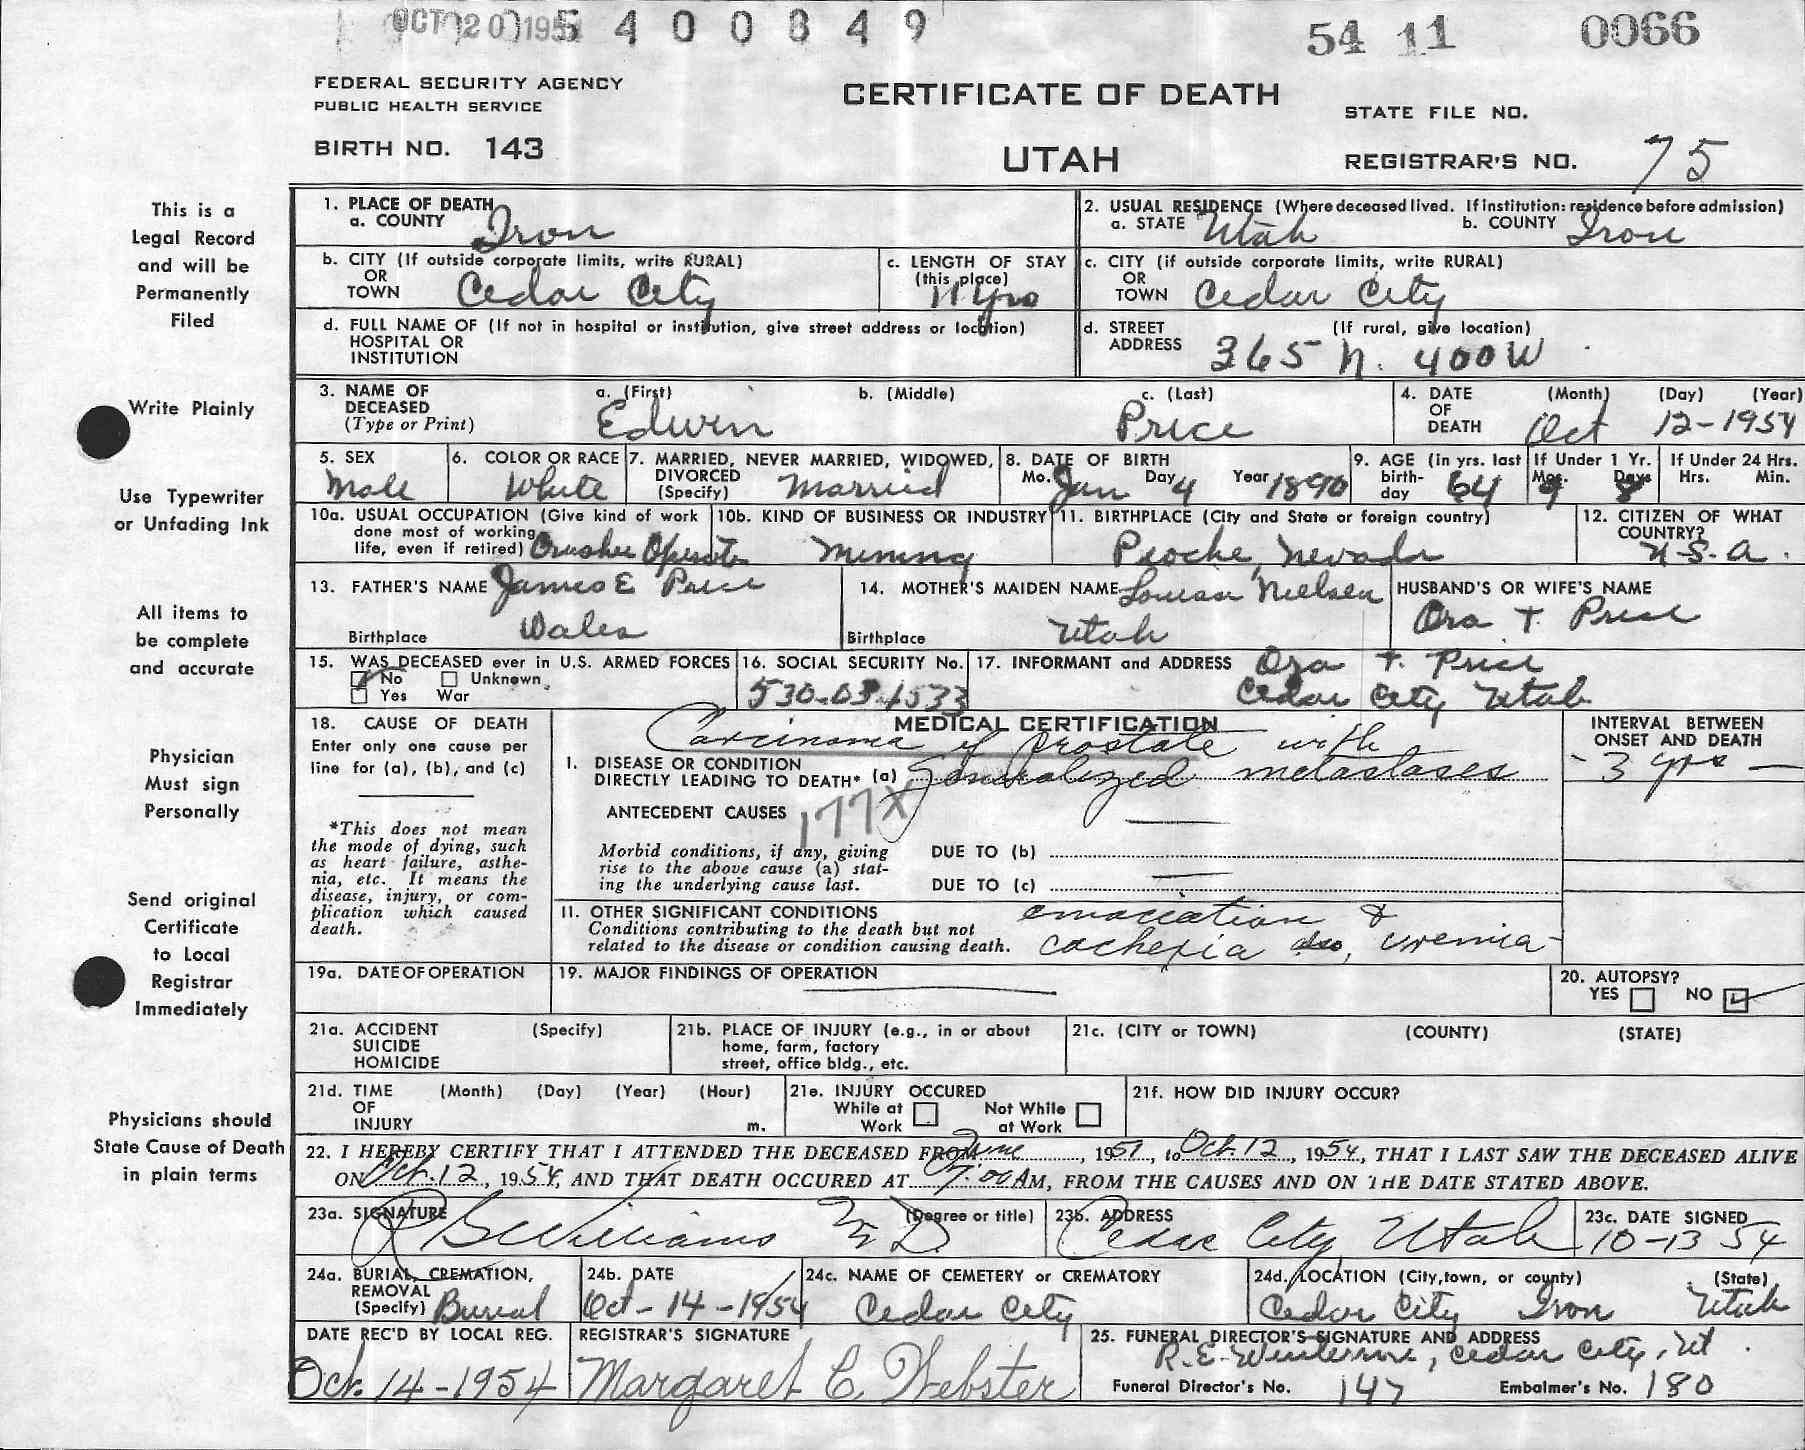 OCT 20 1954 5400849 54 11 0066
FEDERAL SECURITY AGENCY
PUBLIC HEALTH SERVICE
CERTIFICATE OF DEATH
STATE FILE NO.
BIRTH NO. 143
UTAH
REGISTRAR'S NO. 75
This is a
Legal Record
and will be
Permanently
Filed
Write Plainly
Use Typewriter
or Unfading Ink
All items to
be complete
and accurate
Physician
Must sign
Personally
Send original
Certificate
to Local
Registrar
Immediately
Physicians should
State Cause of Death
in plain terms
1. PLACE OF DEATH
a. COUNTY Iron
2. USUAL RESIDENCE (Where deceased lived. If institution: residence before admission)
a. STATE Utah b. COUNTY Iron
b. CITY (If outside corporate limits, write RURAL)
OR
TOWN Cedar City
c. LENGTH OF STAY
(this place)
11 yrs
c. CITY (if outside corporate limits, write RURAL)
OR
TOWN Cedar City
d. FULL NAME OF (If not in hospital or institution, give street address or location)
HOSPITAL OR
INSTITUTION
d. STREET (If rural, give location)
ADDRESS 365 N. 400 W
3. NAME OF DECEASED (Type or Print)
a. (First) b. (Middle) c. (Last)
Edwin Price
4. DATE OF DEATH (Month) (Day) (Year)
Oct 12-1954
5. SEX
Male
6. COLOR OR RACE
White
7. MARRIED, NEVER MARRIED, WIDOWED,
DIVORCED
(Specify) Married
8. DATE OF BIRTH
Mo. Jan Day 4 Year 1890
9. AGE (in yrs. last
birth-
day 64
If Under 1 Yr.
Mos. 9 Days 8
If Under 24 Hrs.
Hrs. Min.
10a. USUAL OCCUPATION (Give kind of work
done most of working
life, even if retired) Crusher Operator
10b. KIND OF BUSINESS OR INDUSTRY
Mining
11. BIRTHPLACE (City and State or foreign country)
Pioche, Nevada
12. CITIZEN OF WHAT
COUNTRY?
U.S.A.
13. FATHER'S NAME James E Price
Birthplace Wales
14. MOTHER'S MAIDEN NAME Nielsen
Birthplace Utah
HUSBAND'S OR WIFE'S NAME
Ora T. Price
15. WAS DECEASED ever in U.S. ARMED FORCES
No Unknown
Yes War
16. SOCIAL SECURITY No.
530-03-1533
17. INFORMANT and ADDRESS Ora T. Price
Cedar City Utah
18. CAUSE OF DEATH
Enter only one cause per
line for (a), (b), and (c)
*This does not mean
the mode of dying, such
as heart failure, asthe-
nia, etc. It means the
disease, injury, or com-
plication which caused
death.
MEDICAL CERTIFICATION
Carcinoma of prostate with
I. DISEASE OR CONDITION
DIRECTLY LEADING TO DEATH* (a) Generalized metastases
ANTECEDENT CAUSES 177X
Morbid conditions, if any, giving
rise to the above cause (a) stat-
ing the underlying cause last.
DUE TO (b)
DUE TO (c)
INTERVAL BETWEEN
ONSET AND DEATH
- 3 yrs -
II. OTHER SIGNIFICANT CONDITIONS
Conditions contributing to the death but not
related to the disease or condition causing death.
emaciation &
cachexia also, uremia
19a. DATE OF OPERATION
19. MAJOR FINDINGS OF OPERATION
20. AUTOPSY?
YES NO
21a. ACCIDENT (Specify)
SUICIDE
HOMICIDE
21b. PLACE OF INJURY (e.g., in or about
home, farm, factory
street, office bldg., etc.
21c. (CITY or TOWN) (COUNTY) (STATE)
21d. TIME (Month) (Day) (Year) (Hour)
OF
INJURY m.
21e. INJURY OCCURED
While at Work Not While at Work
21f. HOW DID INJURY OCCUR?
22. I HEREBY CERTIFY THAT I ATTENDED THE DECEASED FROM June, 1951, to Oct. 12, 1954, THAT I LAST SAW THE DECEASED ALIVE
ON Oct. 12, 1954, AND THAT DEATH OCCURED AT 7:00 AM, FROM THE CAUSES AND ON THE DATE STATED ABOVE.
23a. SIGNATURE (Degree or title)
Williams MD
23b. ADDRESS
Cedar City, Utah
23c. DATE SIGNED
10-13 54
24a. BURIAL, CREMATION,
REMOVAL
(Specify) Burial
24b. DATE
Oct-14-1954
24c. NAME OF CEMETERY or CREMATORY
Cedar City
24d. LOCATION (City, town, or county) (State)
Cedar City Iron Utah
DATE REC'D BY LOCAL REG.
Oct. 14-1954
REGISTRAR'S SIGNATURE
Margaret C Webster
25. FUNERAL DIRECTOR'S SIGNATURE AND ADDRESS
R.E. Cedar City, Ut.
Funeral Director's No. 147 Embalmer's No. 180